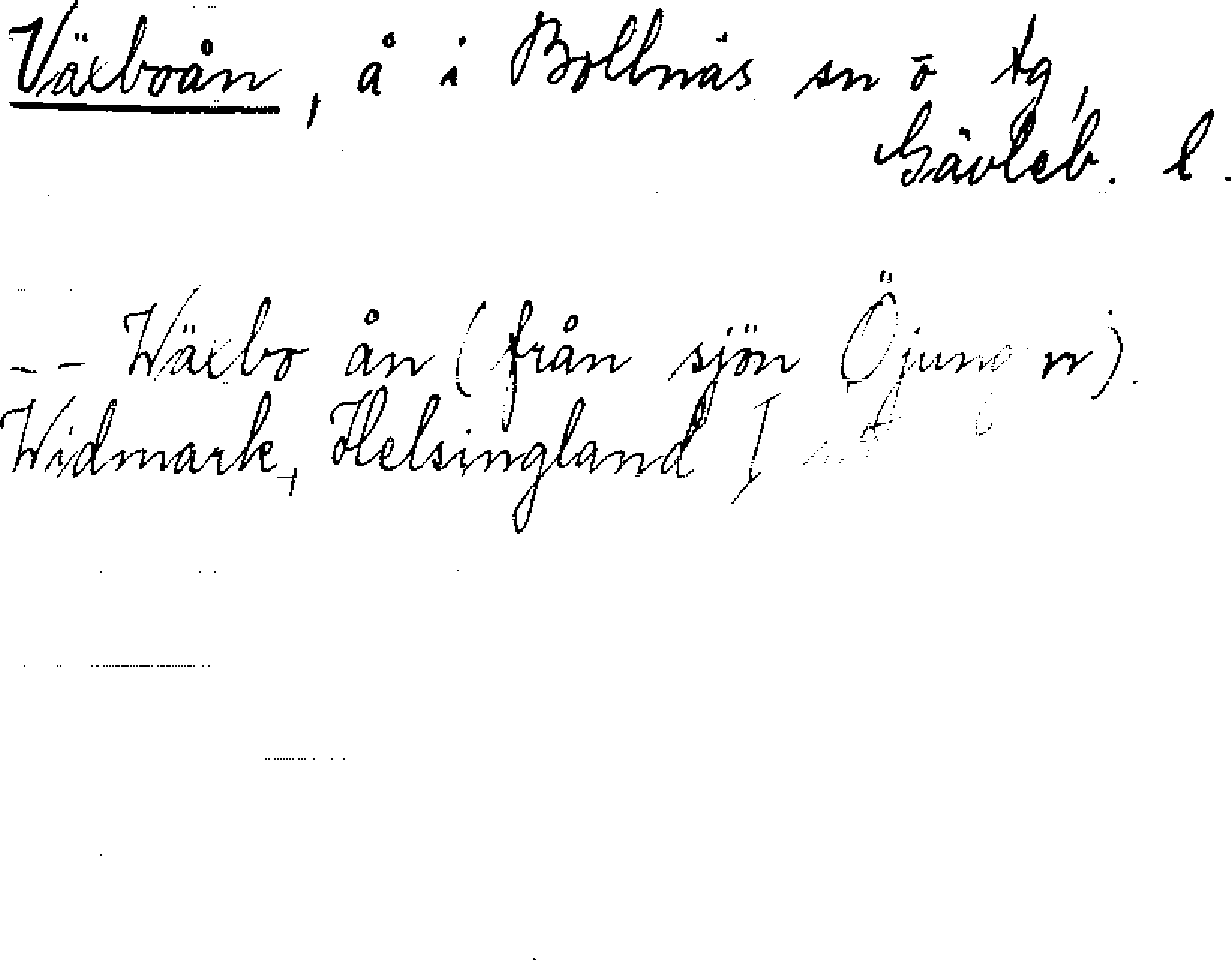 Växboån, å i Bollnäs sn o tg,
Gävleb. l.
-- Wäxbo ån (från sjön Öjungen).
Widmark, Helsingland I